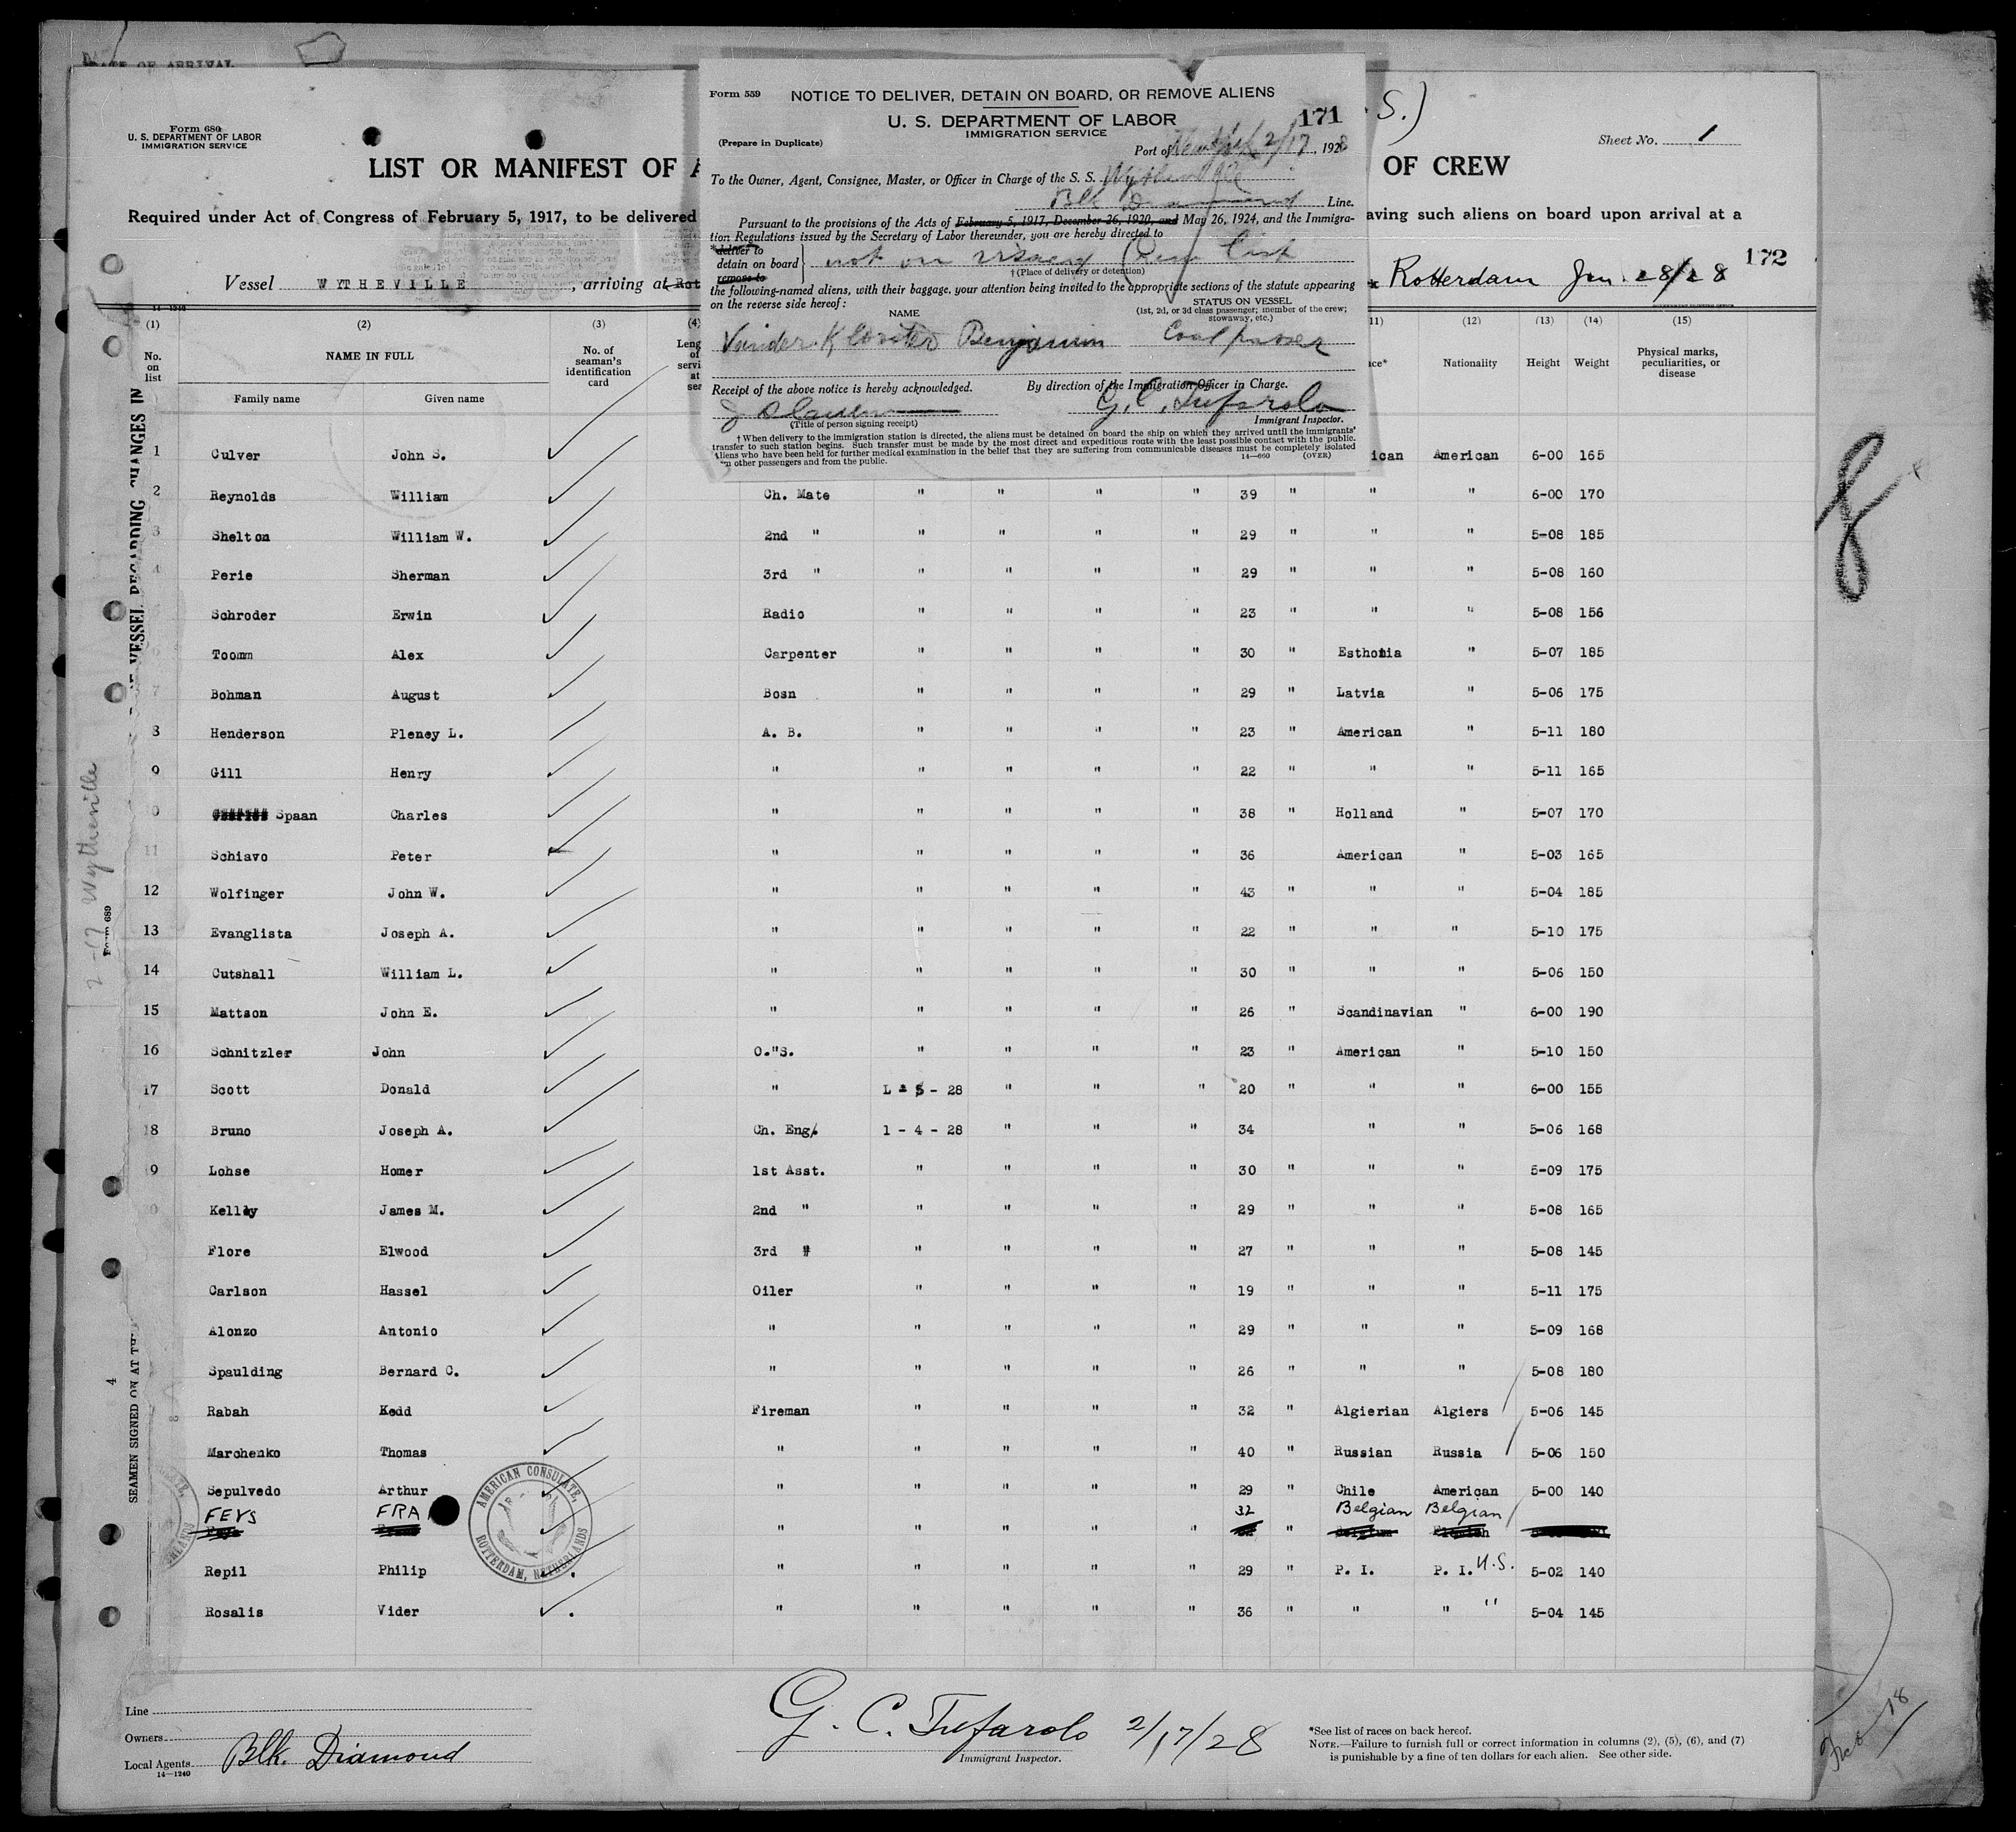 DATE OF ARRIVAL
Form 689
U. S. DEPARTMENT OF LABOR
IMMIGRATION SERVICE
LIST OR MANIFEST OF A
OF CREW
S.)
Sheet No. 1
Required under Act of Congress of February 5, 1917, to be delivered
aving such aliens on board upon arrival at a
172
Vessel WYTHEVILLE, arriving at Rot
Rotterdam Jan 28/28
Form 559
NOTICE TO DELIVER, DETAIN ON BOARD, OR REMOVE ALIENS
U. S. DEPARTMENT OF LABOR
171
IMMIGRATION SERVICE
(Prepare in Duplicate)
Port of New York 2/17, 1928
To the Owner, Agent, Consignee, Master, or Officer in Charge of the S. S. Wytheville
Blk Diamond Line.
Pursuant to the provisions of the Acts of February 5, 1917, December 26, 1920, and May 26, 1924, and the Immigra-
tion Regulations issued by the Secretary of Labor thereunder, you are hereby directed to
*deliver to
detain on board
remove to
not on visaed Crew List
†(Place of delivery or detention)
the following-named aliens, with their baggage, your attention being invited to the appropriate sections of the statute appearing
on the reverse side hereof:
STATUS ON VESSEL
NAME
(1st, 2d, or 3d class passenger; member of the crew;
stowaway, etc.)
Vander Benjamin Coal passer
Receipt of the above notice is hereby acknowledged. By direction of the Immigration Officer in Charge.
G. C. Tufarolo
(Title of person signing receipt) Immigrant Inspector.
† When delivery to the immigration station is directed, the aliens must be detained on board the ship on which they arrived until the immigrants'
transfer to such station begins. Such transfer must be made by the most direct and expeditious route with the least possible contact with the public.
Aliens who have been held for further medical examination in the belief that they are suffering from communicable diseases must be completely isolated
m other passengers and from the public. 14—660 (OVER)
(1) (2) (3) (4) (11) (12) (13) (14) (15)
No. on list
NAME IN FULL
Family name Given name
No. of seaman's identification card
Leng of servi at sea
ce* Nationality Height Weight Physical marks, peculiarities, or disease
1 Culver John S. ican American 6-00 165
2 Reynolds William Ch. Mate " " " " 39 " " " 6-00 170
3 Shelton William W. 2nd " " " " " 29 " " " 5-08 185
4 Perie Sherman 3rd " " " " " 29 " " " 5-08 160
Schroder Erwin Radio " " " " 23 " " " 5-08 156
6 Toomm Alex Carpenter " " " " 30 " Esthonia " 5-07 185
7 Bohman August Bosn " " " " 29 " Latvia " 5-06 175
8 Henderson Pleney L. A. B. " " " " 23 " American " 5-11 180
9 Gill Henry " " " " " 22 " " " 5-11 165
0 Spaan Charles " " " " " 38 " Holland " 5-07 170
11 Schiavo Peter " " " " " 36 American " 5-03 165
12 Wolfinger John W. " " " " " 43 " " " 5-04 185
13 Evanglista Joseph A. " " " " " 22 " " " 5-10 175
14 Cutshall William L. " " " " " 30 " " " 5-06 150
15 Mattson John E. " " " " " 26 " Scandinavian " 6-00 190
16 Schnitzler John O."S. " " " " 23 " American " 5-10 150
17 Scott Donald " L - 5 - 28 " " " 20 " " " 6-00 155
18 Bruno Joseph A. Ch. Eng. 1 - 4 - 28 " " " 34 " " 5-06 168
9 Lohse Homer 1st Asst. " " " " 30 " " " 5-09 175
0 Kelley James M. 2nd " " " " " 29 " " " 5-08 165
Flore Elwood 3rd # " " " " 27 " " " 5-08 145
Carlson Hassel Oiler " " " " 19 " " " 5-11 175
Alonzo Antonio " " " " " 29 " " " 5-09 168
Spaulding Bernard C. " " " " " 26 " " " 5-08 180
Rabah Kedd Fireman " " " " 32 " Algierian Algiers 5-06 145
Marchenko Thomas " " " " " 40 " Russian Russia 5-06 150
Sepulvedo Arthur " " " " " 29 " Chile American 5-00 140
FEYS FRA " " " " " 32 " Belgian Belgian
Repil Philip " " " " " 29 " P. I. P. I. U.S. 5-02 140
Rosalis Vider " " " " " 36 " " " " 5-04 145
AMERICAN CONSULATE,
ROTTERDAM, NETHERLANDS
Line
Owners
Local Agents Blk. Diamond
14—1240
G. C. Tufarolo 2/17/28
Immigrant Inspector.
*See list of races on back hereof.
NOTE.—Failure to furnish full or correct information in columns (2), (5), (6), and (7)
is punishable by a fine of ten dollars for each alien. See other side.
2-17 Wytheville
Form 689
VESSEL REGARDING CHANGES IN
SEAMEN SIGNED ON AT TH
4
8